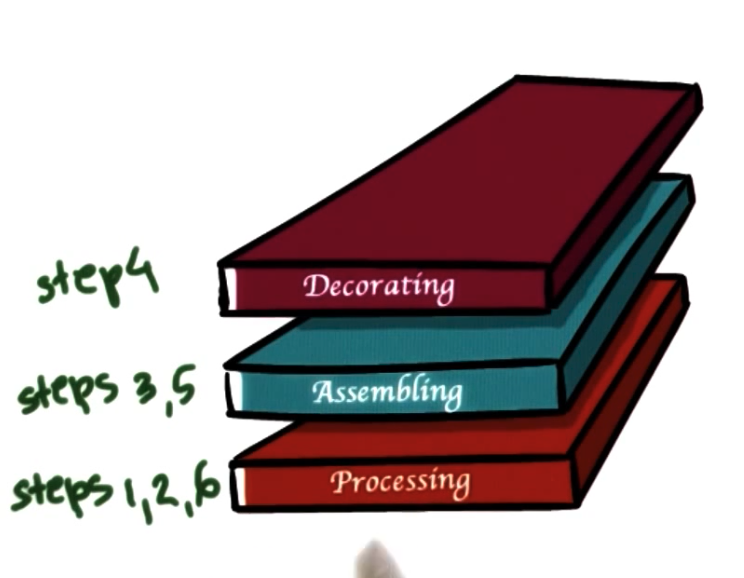 step4
Decorating
steps 3,5
Assembling
steps 1,2,6
Processing